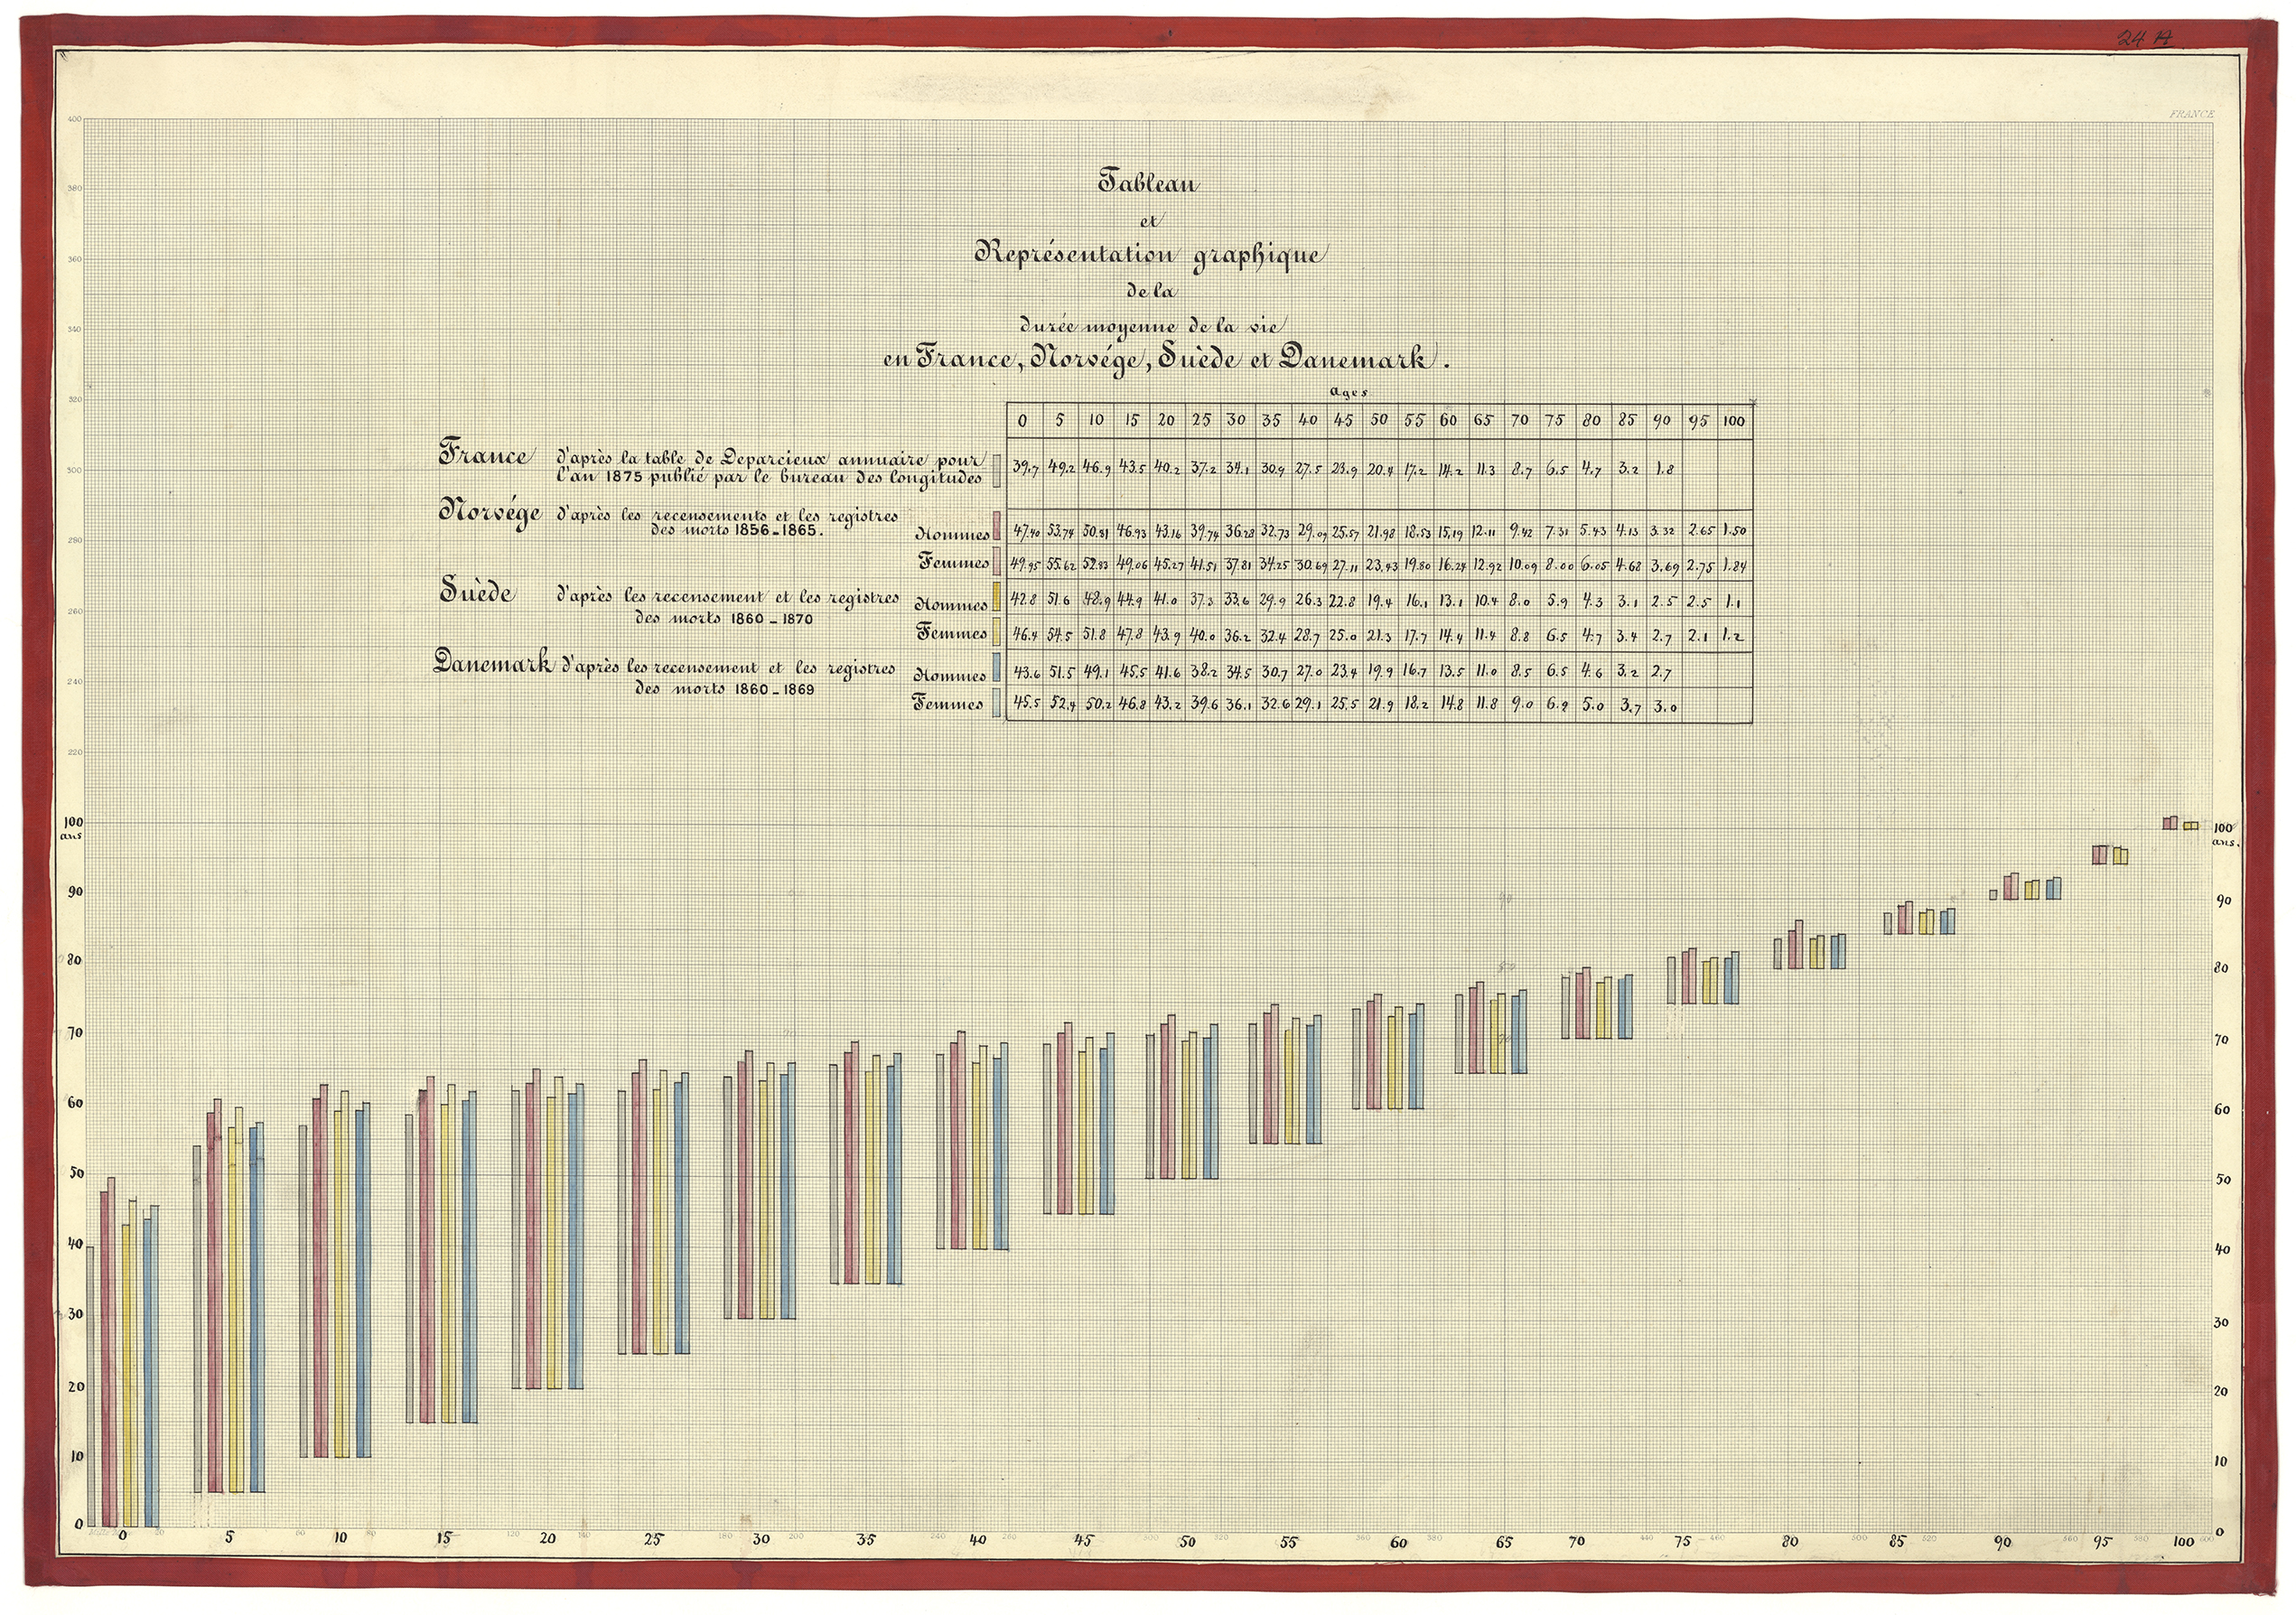 24 A
FRANCE
Tableau
et
Représentation graphique
de la
durée moyenne de la vie
en France, Norvége, Suède et Danemark.
Ages
0 5 10 15 20 25 30 35 40 45 50 55 60 65 70 75 80 85 90 95 100
France d'après la table de Deparcieux annuaire pour
l'an 1875 publié par le bureau des longitudes
39.7 49.2 46.9 43.5 40.2 37.2 34.1 30.9 27.5 23.9 20.4 17.2 14.2 11.3 8.7 6.5 4.7 3.2 1.8
Norvége d'après les recensements et les registres
des morts 1856-1865.
Hommes 47.40 53.74 50.81 46.93 43.16 39.74 36.28 32.73 29.09 25.57 21.98 18.53 15.19 12.11 9.42 7.31 5.43 4.13 3.32 2.65 1.50
Femmes 49.95 55.62 52.83 49.06 45.27 41.51 37.81 34.25 30.69 27.11 23.43 19.80 16.24 12.92 10.09 8.00 6.05 4.68 3.69 2.75 1.84
Suède d'après les recensement et les registres
des morts 1860-1870
Hommes 42.8 51.6 48.9 44.9 41.0 37.3 33.6 29.9 26.3 22.8 19.4 16.1 13.1 10.4 8.0 5.9 4.3 3.1 2.5 2.5 1.1
Femmes 46.4 54.5 51.8 47.8 43.9 40.0 36.2 32.4 28.7 25.0 21.3 17.7 14.4 11.4 8.8 6.5 4.7 3.4 2.7 2.1 1.2
Danemark d'après les recensement et les registres
des morts 1860-1869
Hommes 43.6 51.5 49.1 45.5 41.6 38.2 34.5 30.7 27.0 23.4 19.9 16.7 13.5 11.0 8.5 6.5 4.6 3.2 2.7
Femmes 45.5 52.4 50.2 46.8 43.2 39.6 36.1 32.6 29.1 25.5 21.9 18.2 14.8 11.8 9.0 6.9 5.0 3.7 3.0
400
380
360
340
320
300
280
260
240
220
100
ans
90
80
70
60
50
40
30
20
10
0
100
ans.
90
80
70
60
50
40
30
20
10
0
0 5 10 15 20 25 30 35 40 45 50 55 60 65 70 75 80 85 90 95 100